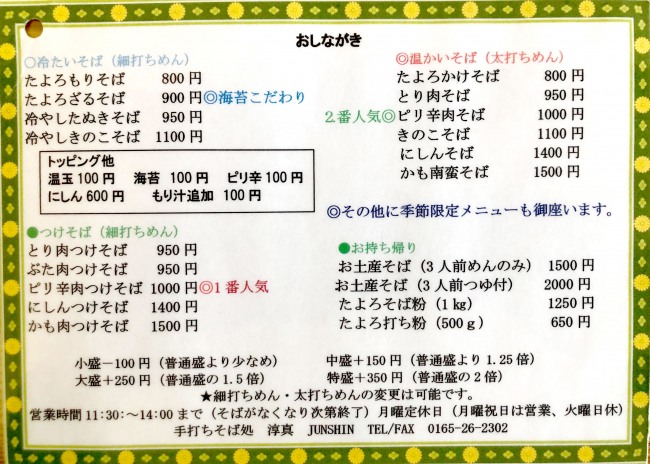 おしながき
○冷たいそば（細打ちめん）
たよろもりそば 800円
たよろざるそば 900円◎海苔こだわり
冷やしたぬきそば 950円
冷やしきのこそば 1100円
トッピング他
温玉100円 海苔 100円 ピリ辛100円
にしん600円 もり汁追加 100円
●つけそば（細打ちめん）
とり肉つけそば 950円
ぶた肉つけそば 950円
ピリ辛肉つけそば 1000円◎1番人気
にしんつけそば 1400円
かも肉つけそば 1500円
◎温かいそば（太打ちめん）
たよろかけそば 800円
とり肉そば 950円
2.番人気◎ピリ辛肉そば 1000円
きのこそば 1100円
にしんそば 1400円
かも南蛮そば 1500円
◎その他に季節限定メニューも御座います。
●お持ち帰り
お土産そば（3人前めんのみ） 1500円
お土産そば（3人前つゆ付） 2000円
たよろそば粉（1㎏） 1250円
たよろ打ち粉（500ｇ） 650円
小盛－100円（普通盛より少なめ） 中盛＋150円（普通盛より1.25倍）
大盛＋250円（普通盛の1.5倍） 特盛＋350円（普通盛の2倍）
★細打ちめん・太打ちめんの変更は可能です。
営業時間11:30:～14:00まで（そばがなくなり次第終了）月曜定休日（月曜祝日は営業、火曜日休）
手打ちそば処 淳真 JUNSHIN TEL/FAX 0165-26-2302